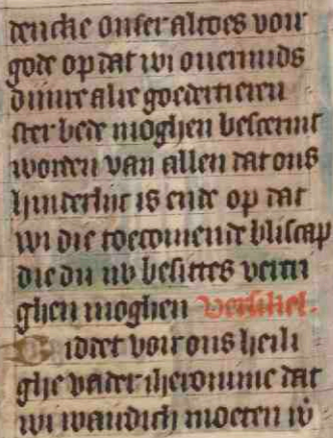 dencke onser altoes voir
gode op dat wi ouermids
dijnre alre goedertieren
ster bede moghen bescermt
worden van allen dat ons
hinderlic is ende op dat
wi die toecomende bliscap
die du nv besittes vercri
ghen moghen versikel.
Bidet voir ons heili
ghe vader iheronime dat
wi waerdich moeten w